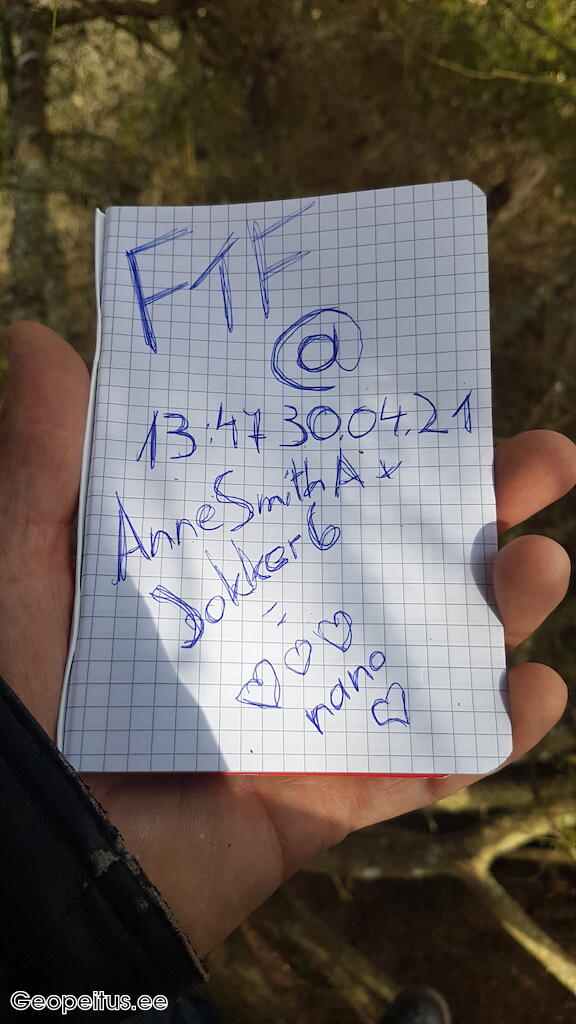 FTF
@
13:47 30.04.21
AnneSmithA +
Dokker6
=
nano
Geopeitus.ee